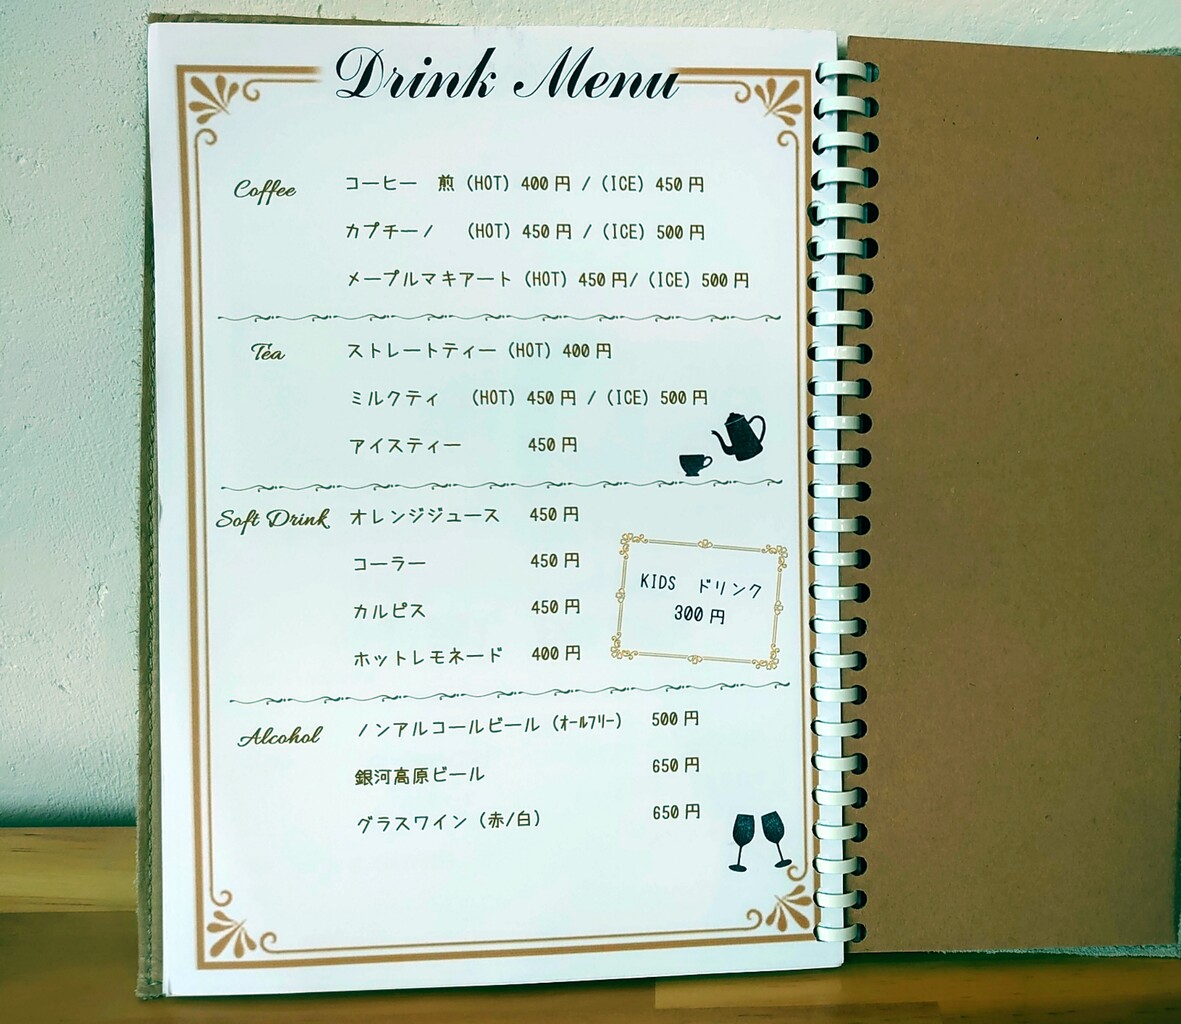 Drink Menu
Coffee コーヒー 煎 (HOT) 400 円 / (ICE) 450 円
カプチーノ (HOT) 450 円 / (ICE) 500 円
メープルマキアート (HOT) 450 円/ (ICE) 500 円
Tea ストレートティー (HOT) 400 円
ミルクティ (HOT) 450 円 / (ICE) 500 円
アイスティー 450 円
Soft Drink オレンジジュース 450 円
コーラー 450 円
カルピス 450 円
ホットレモネード 400 円
KIDS ドリンク
300 円
Alcohol ノンアルコールビール (ｵｰﾙﾌﾘｰ) 500 円
銀河高原ビール 650 円
グラスワイン (赤/白) 650 円